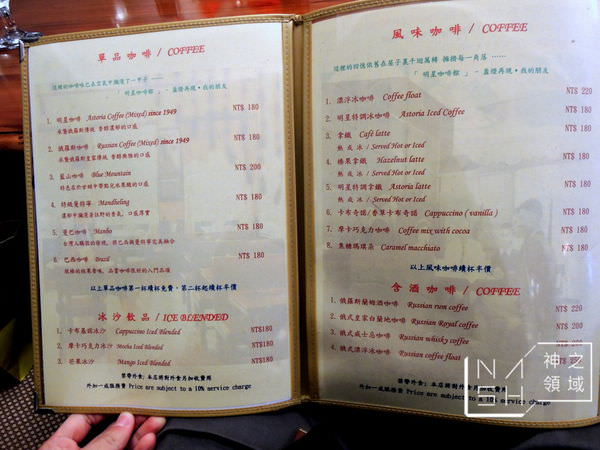 單品咖啡 / COFFEE
這裡的咖啡味已在空氣中瀰漫了一甲子 ──
「明星咖啡館」- 盡燈再現‧我的朋友
1. 明星咖啡 Astoria Coffee (Mixed) since 1949 NT$ 180
承襲俄羅斯傳統 香醇濃郁的口感
2. 俄羅斯咖啡 Russian Coffee (Mixed) since 1949 NT$ 180
承襲俄羅斯皇家傳統 香醇興雅的口感
3. 藍山咖啡 Blue Mountain NT$ 200
特色在於甘醇中帶點化水果酸的口感
4. 特級曼特寧 Mandheling NT$ 180
濃郁中瀰漫著狂野的香氣,口感厚實
5. 曼巴咖啡 Manbo NT$ 180
台灣人驕傲的發現,將巴西與曼特寧完美融合
6. 巴西咖啡 Brazil NT$ 180
以上單品咖啡第一杯續杯免費,第二杯起續杯半價
冰沙飲品 / ICE BLENDED
1. 卡布基諾冰沙 Cappuccino Iced Blended NT$180
2. 摩卡巧克力冰沙 Mocha Iced Blended NT$180
3. 芒果冰沙 Mango Iced Blended NT$180
禁帶外食;本店將對外食另加收費用
外加一成服務費 Price are subject to a 10% service charge
風味咖啡 / COFFEE
這裡的回憶依舊在茶子裏千迴萬轉 擁擠每一角落 ......
「明星咖啡館」- 盡燈再現‧我的朋友
1. 漂浮冰咖啡 Coffee float NT$ 220
2. 明星特調冰咖啡 Astoria Iced Coffee NT$ 180
3. 拿鐵 Café latte NT$ 180
熱或冰 / Served Hot or Iced
4. 榛果拿鐵 Hazelnut latte NT$ 180
熱或冰 / Served Hot or Iced
5. 明星特調拿鐵 Astoria latte NT$ 180
熱或冰 / Served Hot or Iced
6. 卡布奇諾/香草卡布奇諾 Cappuccino ( vanilla ) NT$ 180
7. 摩卡巧克力咖啡 Coffee mix with cocoa NT$ 180
8. 焦糖瑪琪朵 Caramel macchiato NT$ 180
以上風味咖啡續杯半價
含酒咖啡 / COFFEE
1. 俄羅斯蘭姆酒咖啡 Russian rum coffee NT$ 220
2. 俄式皇家白蘭地咖啡 Russian Royal coffee NT$ 200
3. 俄式威士忌咖啡 Russian whisky coffee NT$ 220
4. 俄式漂浮冰咖啡 Russian coffee float NT$
禁帶外食;本店將對外食另加收費用
外加一成服務費 Price are subject to a 10% service charge
神之領域